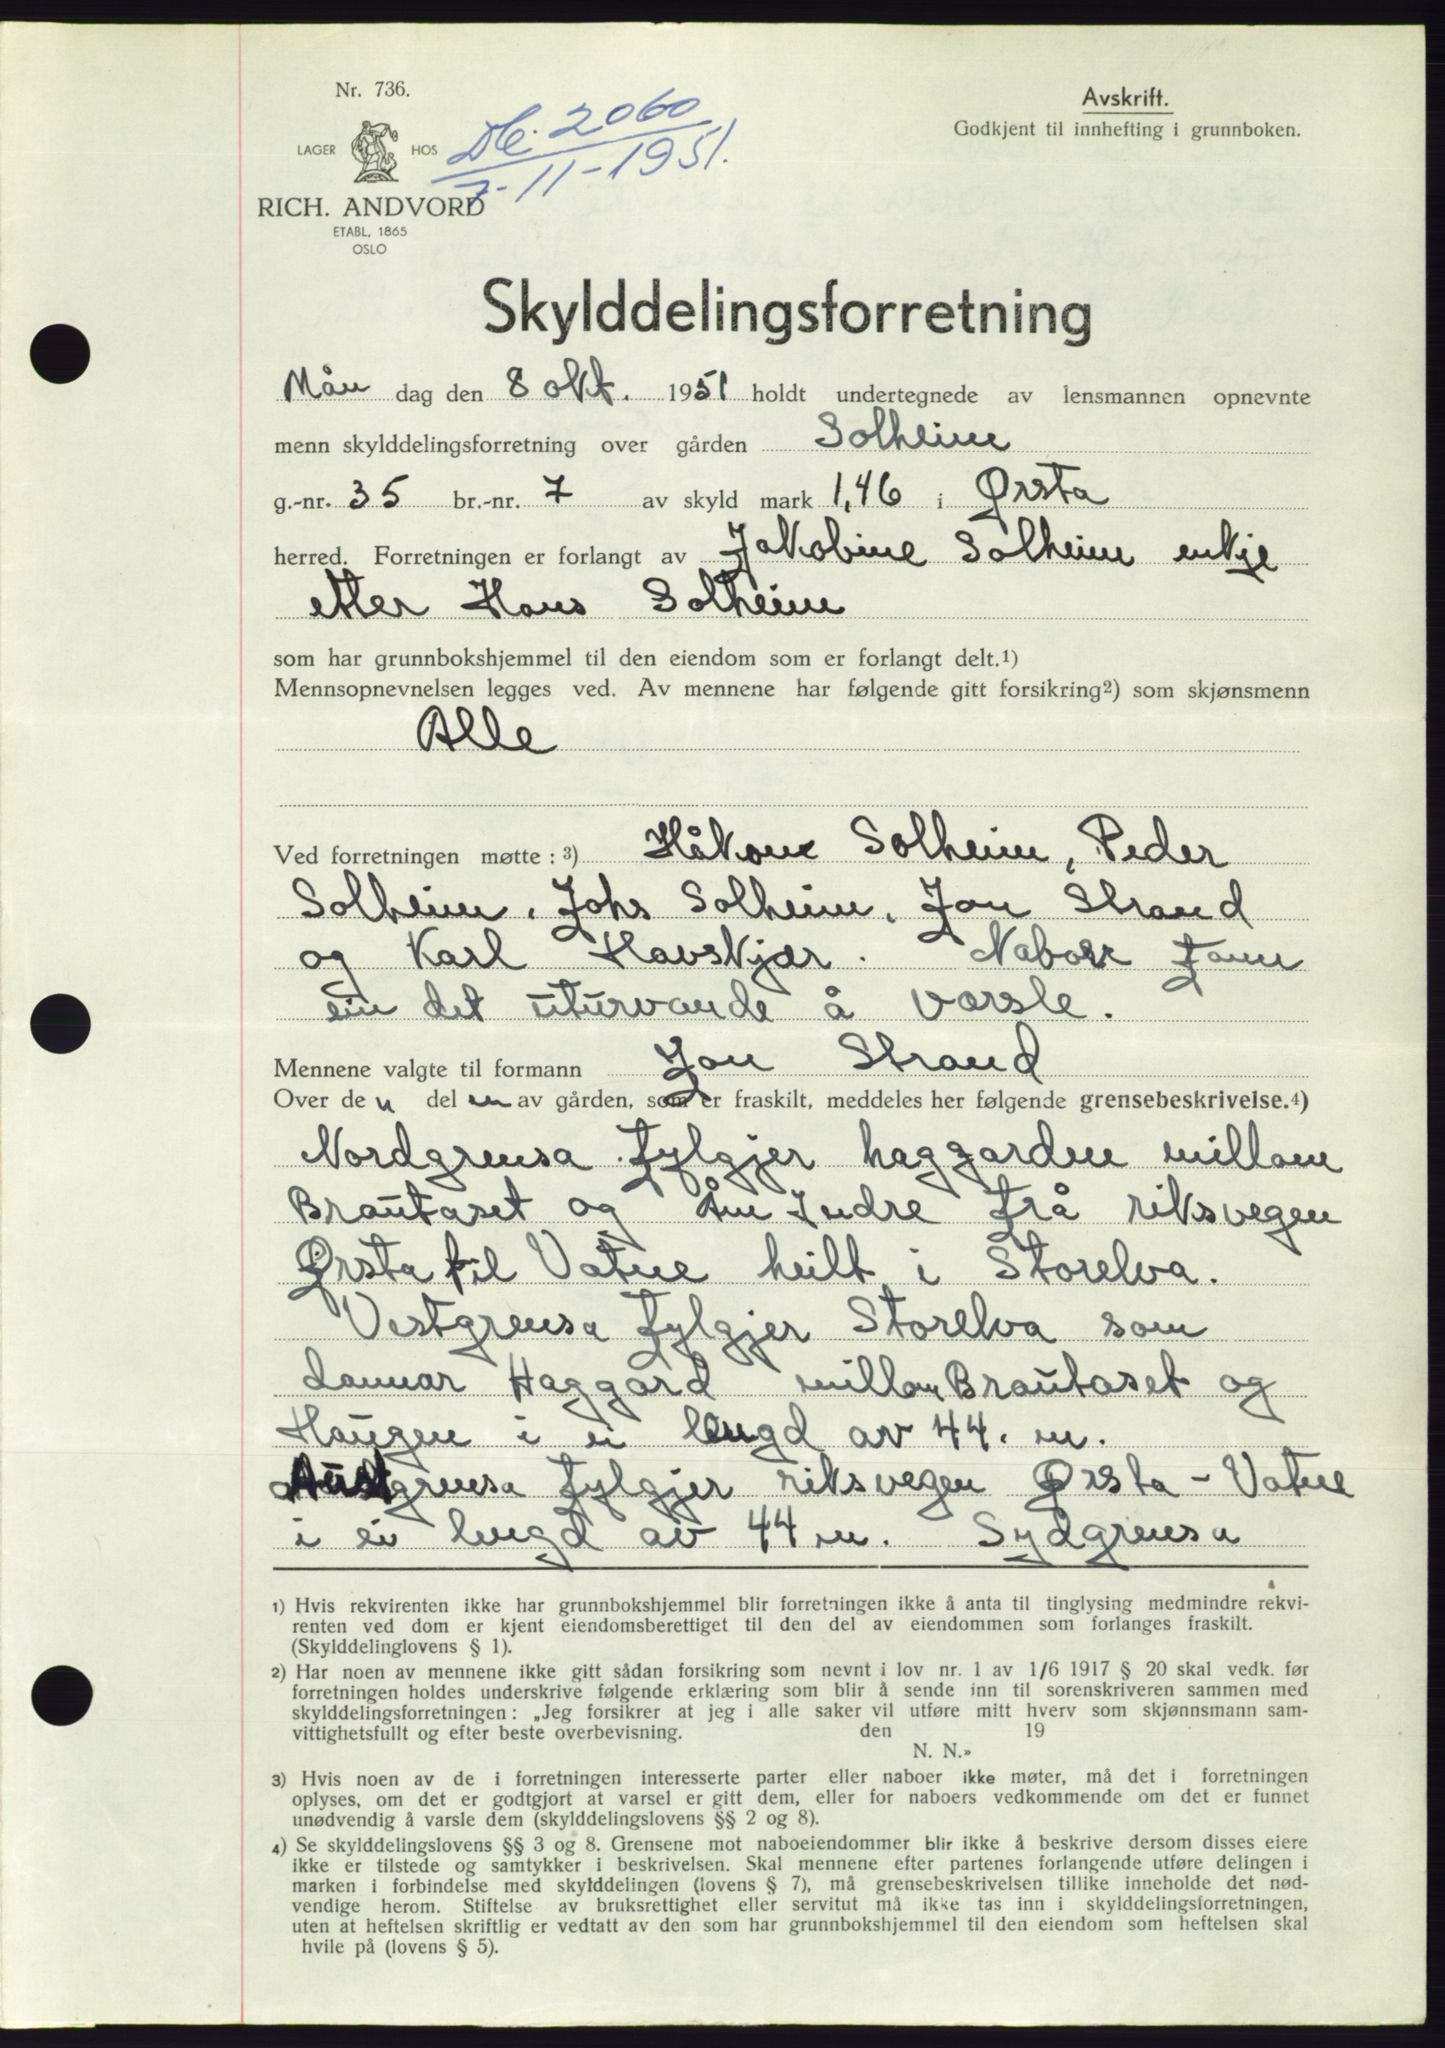 Nr. 736.
Avskrift.
Godkjent til innhefting i grunnboken.
2060
7-11-1951.
LAGER HOS
RICH. ANDVORD
ETABL. 1865
OSLO
Skylddelingsforretning
Mån dag den 8 okt. 1951 holdt undertegnede av lensmannen opnevnte
menn skylddelingsforretning over gården Solheim
g.-nr. 35 br.-nr. 7 av skyld mark 1,46 i Ørsta
herred. Forretningen er forlangt av Jakobine Solheim enkje
etter Hans Solheim
som har grunnbokshjemmel til den eiendom som er forlangt delt.1)
Mennsopnevnelsen legges ved. Av mennene har følgende gitt forsikring2) som skjønsmenn
Alle
Ved forretningen møtte: 3) Håkone Solheim, Peder
Solheim, Johs Solheim, Jon Strand
og Karl Havskjær. Naboar fann
ein det uturvande å varsle.
Mennene valgte til formann Jon Strand
Over den delen av gården, som er fraskilt, meddeles her følgende grensebeskrivelse.4)
Nordgrensa fylgjer haggarden millom
Brautaset og Åm Indre frå riksvegen
Ørsta til Vatne heilt i Storelva.
Vestgrensa fylgjer Storelva som
dannar Haggard millom Brautaset og
Haugen i ei lengd av 44. m.
Austgrensa fylgjer riksvegen Ørsta - Vatne
i ei lengd av 44 m. Sydgrensa
1) Hvis rekvirenten ikke har grunnbokshjemmel blir forretningen ikke å anta til tinglysing medmindre rekvi-
renten ved dom er kjent eiendomsberettiget til den del av eiendommen som forlanges fraskilt.
(Skylddelinglovens § 1).
2) Har noen av mennene ikke gitt sådan forsikring som nevnt i lov nr. 1 av 1/6 1917 § 20 skal vedk. før
forretningen holdes underskrive følgende erklæring som blir å sende inn til sorenskriveren sammen med
skylddelingsforretningen: „Jeg forsikrer at jeg i alle saker vil utføre mitt hverv som skjønnsmann sam-
vittighetsfullt og efter beste overbevisning. den 19
N. N.»
3) Hvis noen av de i forretningen interesserte parter eller naboer ikke møter, må det i forretningen
oplyses, om det er godtgjort at varsel er gitt dem, eller for naboers vedkommende om det er funnet
unødvendig å varsle dem (skylddelingslovens §§ 2 og 8).
4) Se skylddelingslovens §§ 3 og 8. Grensene mot naboeiendommer blir ikke å beskrive dersom disses eiere
ikke er tilstede og samtykker i beskrivelsen. Skal mennene efter partenes forlangende utføre delingen i
marken i forbindelse med skylddelingen (lovens § 7), må grensebeskrivelsen tillike inneholde det nød-
vendige herom. Stiftelse av bruksrettighet eller servitut må ikke tas inn i skylddelingsforretningen,
uten at heftelsen skriftlig er vedtatt av den som har grunnbokshjemmel til den eiendom som heftelsen skal
hvile på (lovens § 5).